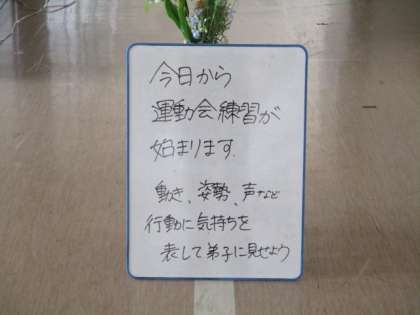 今日から
運動会練習が
始まります.
動き、姿勢、声など
行動に気持ちを
表して弟子に見せよう